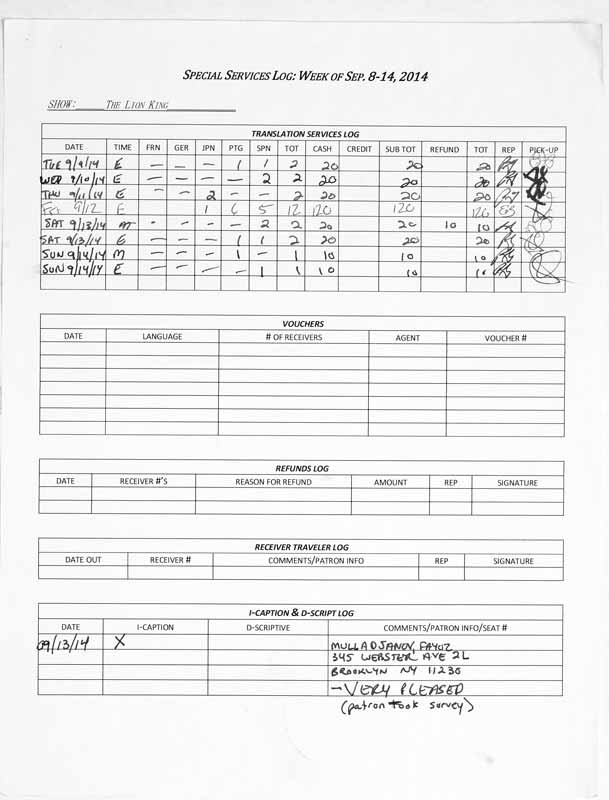 SPECIAL SERVICES LOG: WEEK OF SEP. 8-14, 2014
SHOW: THE LION KING
TRANSLATION SERVICES LOG
DATE TIME FRN GER JPN PTG SPN TOT CASH CREDIT SUB TOT REFUND TOT REP PICK-UP
TUE 9/9/14 E – – – 1 1 2 20 20 20
WED 9/10/14 E – – – – 2 2 20 20 20
THU 9/11/14 E – – 2 – – 2 20 20 20
Fri 9/12 E 1 6 5 12 120 120 120
SAT 9/13/14 M - - - - 2 2 20 20 10 10
SAT 9/13/14 E – – – 1 1 2 20 20 20
SUN 9/14/14 M – – – 1 – 1 10 10 10
SUN 9/14/14 E – – – – 1 1 10 10 10
VOUCHERS
DATE LANGUAGE # OF RECEIVERS AGENT VOUCHER #
REFUNDS LOG
DATE RECEIVER #'S REASON FOR REFUND AMOUNT REP SIGNATURE
RECEIVER TRAVELER LOG
DATE OUT RECEIVER # COMMENTS/PATRON INFO REP SIGNATURE
I-CAPTION & D-SCRIPT LOG
DATE I-CAPTION D-SCRIPTIVE COMMENTS/PATRON INFO/SEAT #
09/13/14 X MULLADJANOV, FAYOZ
345 WEBSTER AVE 2L
BROOKLYN NY 11230
– VERY PLEASED
(patron took survey)